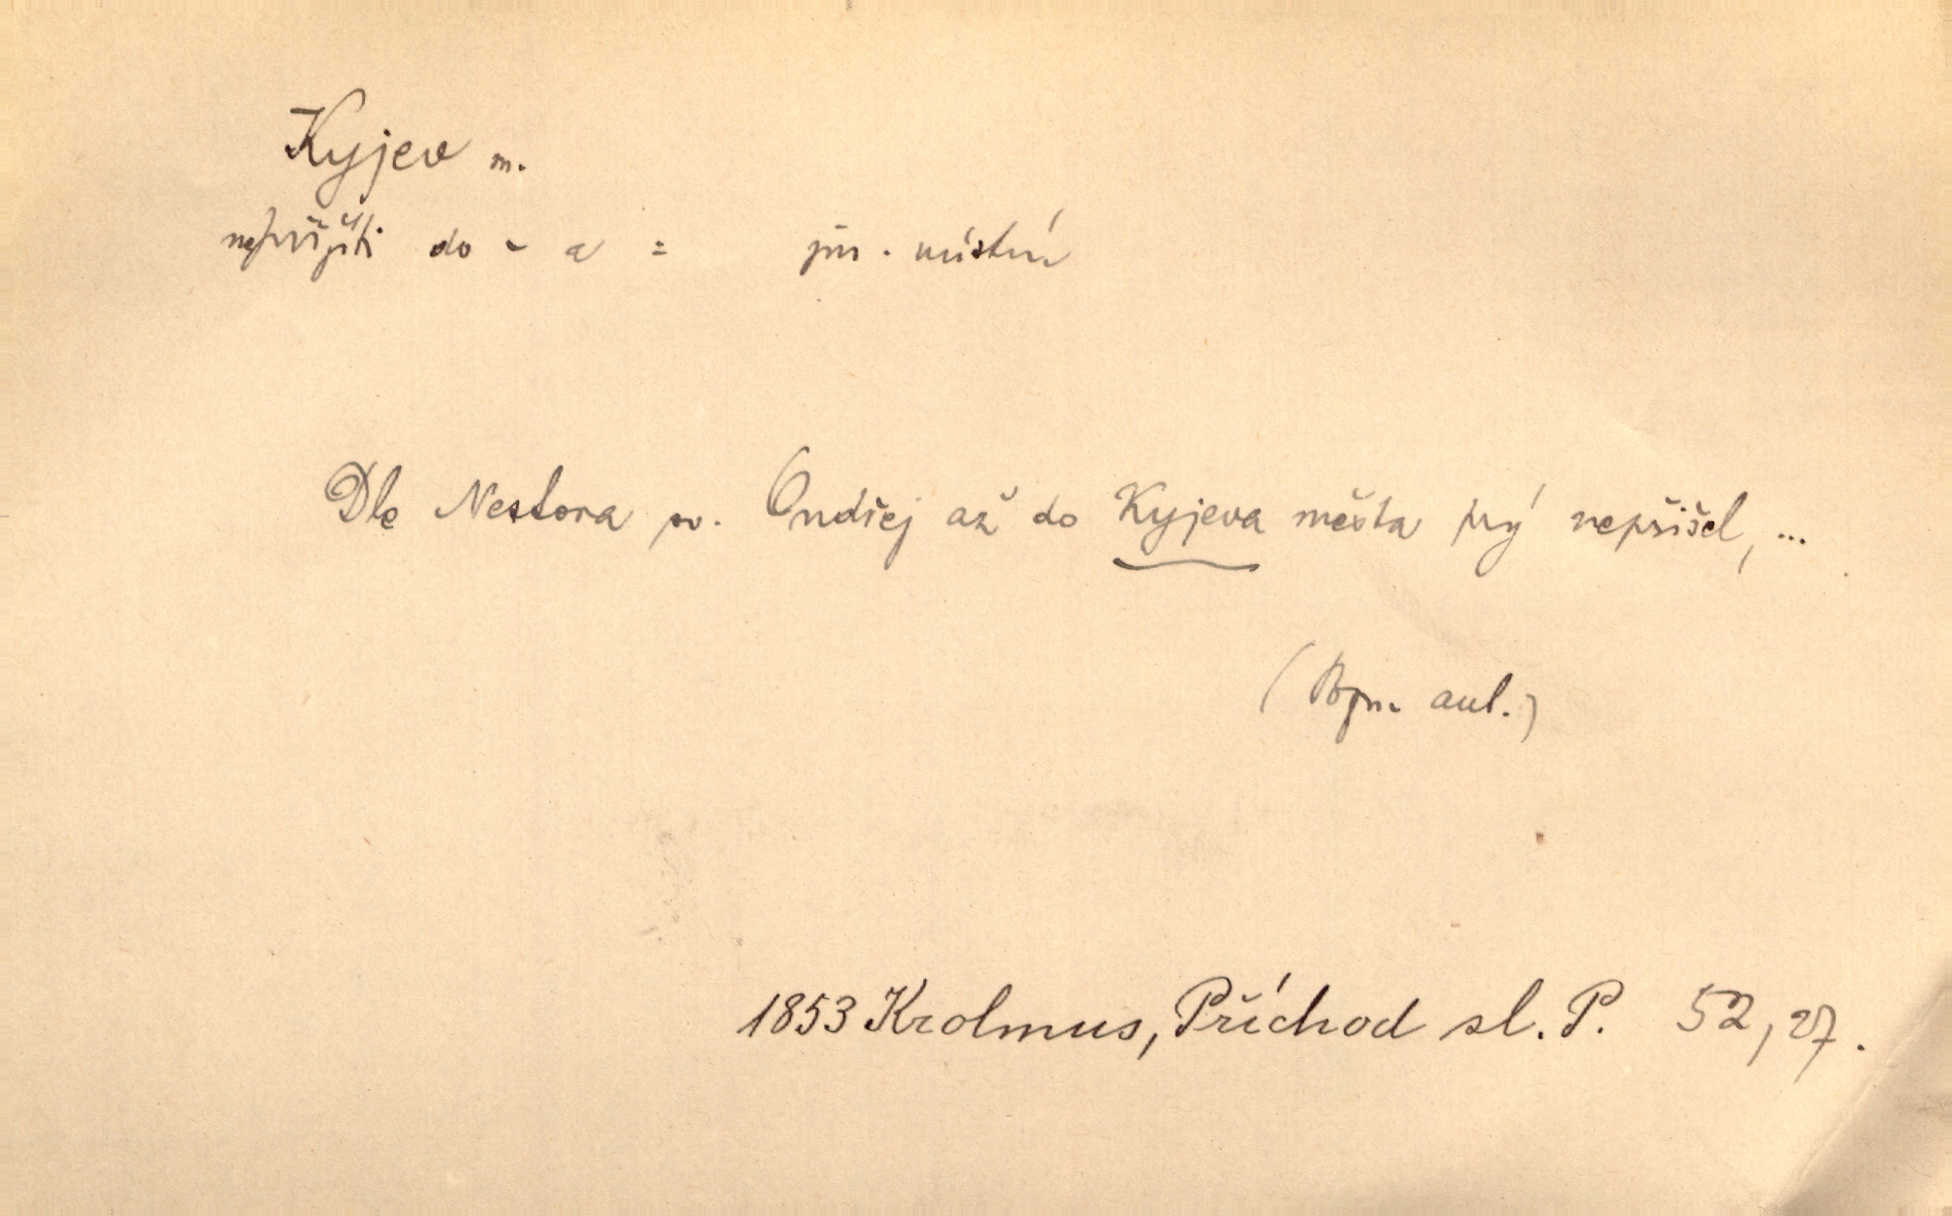 Kyjev m.
nepřijíti do - a = jm. místní
Dle Nestora sv. Ondřej až do Kyjeva města prý nepřišel, ...
(Pozn. aut.)
1853 Krolmus, Příchod sl. P. 52, 27.